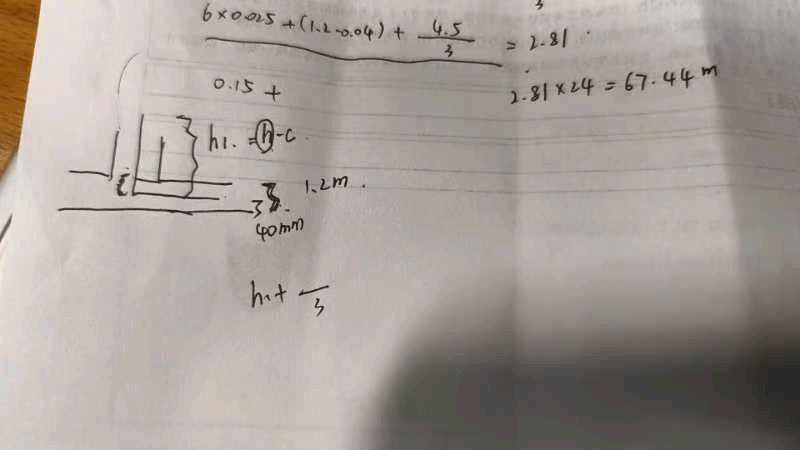 3
6×0.025+(1.2-0.04)+ 4.5/3 = 2.81
2.81×24=67.44 m
0.15+
h1. = h-c.
1.2m.
3
40mm
h1+ —/3